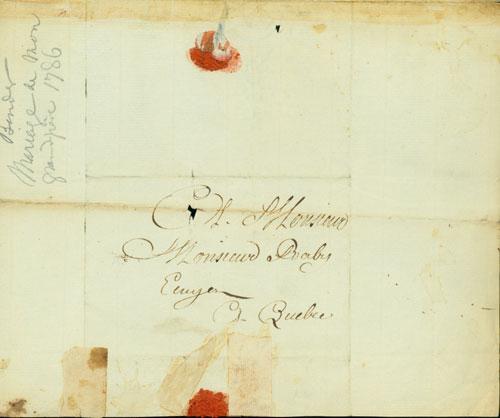 Bender
Mariage de Mon
grand père 1786
A Monsieur
Monsieur Baby
Ecuyer
A Quebec